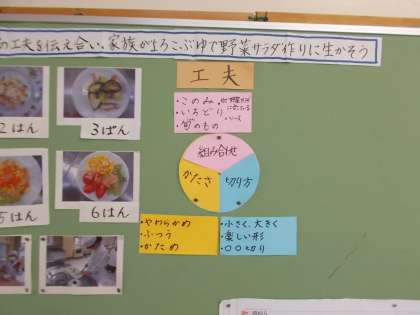 の工夫を伝え合い、家族がよろこぶゆで野菜サラダ作りに生かそう
工夫
・このみ
・いろどり
・旬のもの
・ソース
2はん
3はん
組み合わせ
かたさ
切り方
5はん
6はん
・やわらかめ
・ふつう
・かため
・小さく、大きく
・楽しい形
・〇〇切り